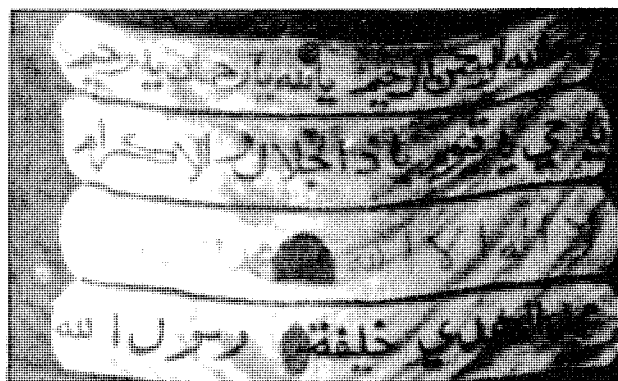 الله الرحمن الرحيم يالله يارحمان يارحيم
ياحي يا قيوم ياذا الجلال والاكرام
محمد المهدي خليفة رسول الله